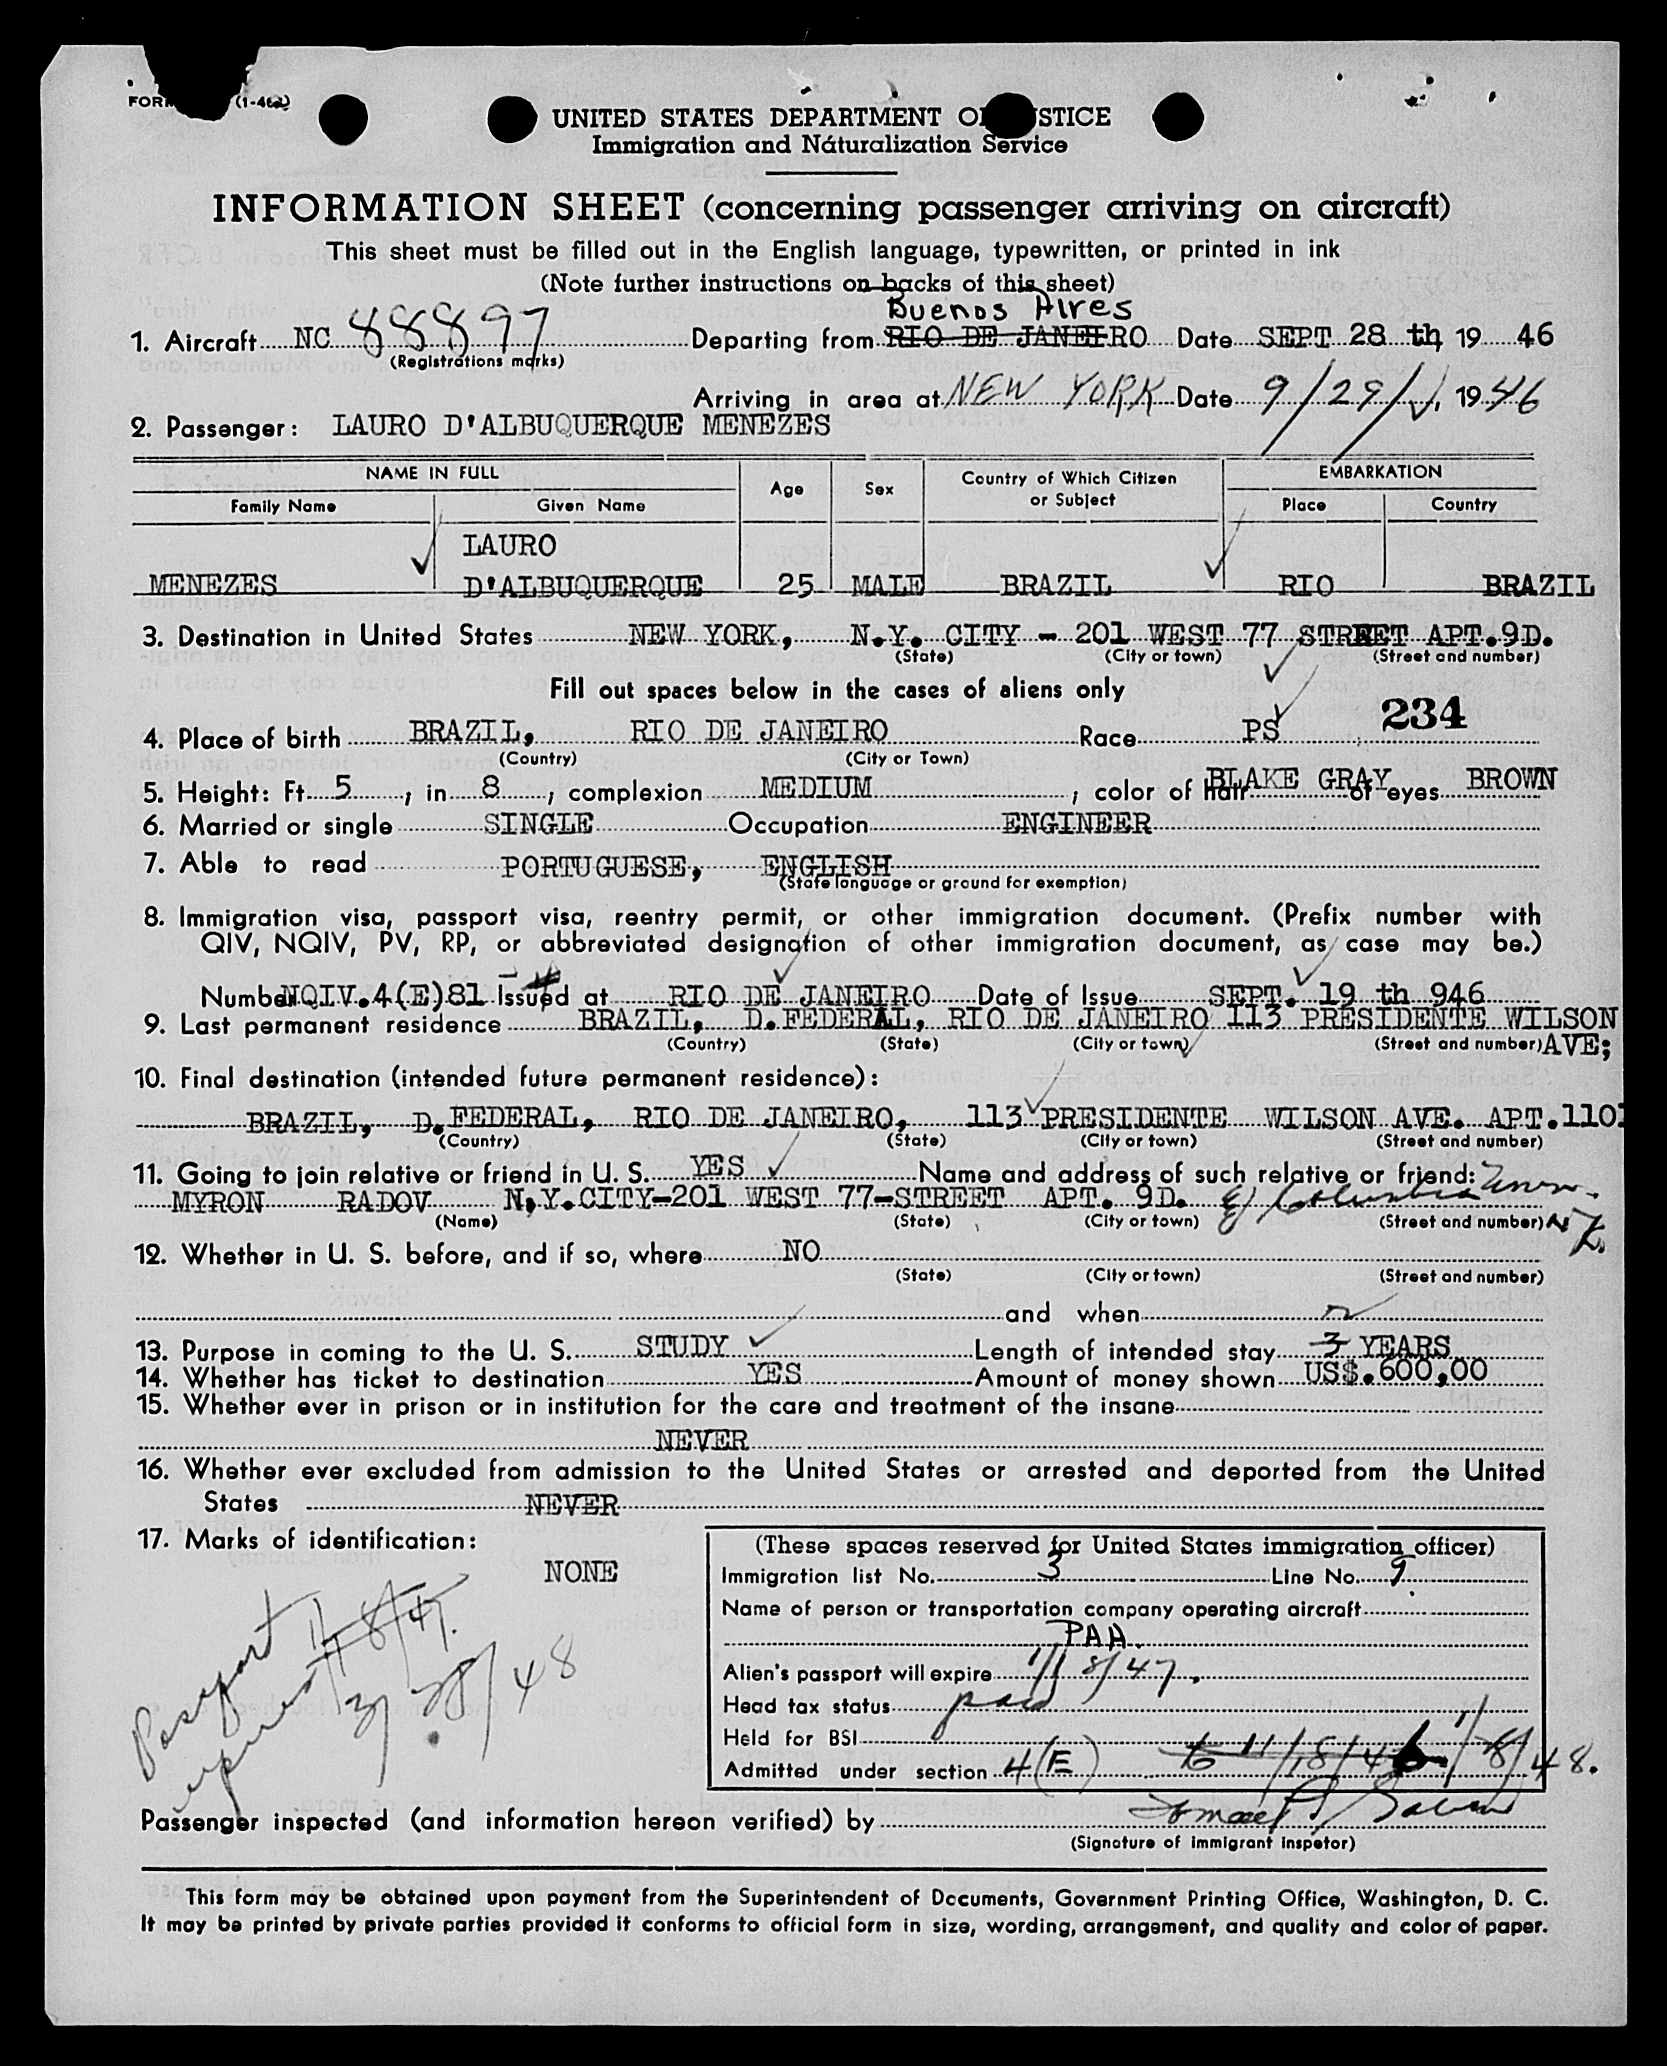 FOR (1-46)
UNITED STATES DEPARTMENT OF JUSTICE
Immigration and Naturalization Service
INFORMATION SHEET (concerning passenger arriving on aircraft)
This sheet must be filled out in the English language, typewritten, or printed in ink
(Note further instructions on backs of this sheet)
Buenos Aires
1. Aircraft NC 88897 Departing from RIO DE JANEIRO Date SEPT 28 th 19 46
(Registrations marks)
Arriving in area at NEW YORK Date 9/29/, 19 46
2. Passenger: LAURO D'ALBUQUERQUE MENEZES
NAME IN FULL Age Sex Country of Which Citizen or Subject EMBARKATION
Family Name Given Name Place Country
LAURO
MENEZES D'ALBUQUERQUE 25 MALE BRAZIL RIO BRAZIL
3. Destination in United States NEW YORK, N.Y. CITY - 201 WEST 77 STREET APT.9D.
(State) (City or town) (Street and number)
Fill out spaces below in the cases of aliens only
234
4. Place of birth BRAZIL, RIO DE JANEIRO Race PS
(Country) (City or Town)
5. Height: Ft. 5, in. 8, complexion MEDIUM; color of hair BLAKE GRAY of eyes BROWN
6. Married or single SINGLE Occupation ENGINEER
7. Able to read PORTUGUESE, ENGLISH
(State language or ground for exemption)
8. Immigration visa, passport visa, reentry permit, or other immigration document. (Prefix number with
QIV, NQIV, PV, RP, or abbreviated designation of other immigration document, as case may be.)
Number NQIV.4(E)81 Issued at RIO DE JANEIRO Date of Issue SEPT. 19 th 946
9. Last permanent residence BRAZIL, D.FEDERAL, RIO DE JANEIRO 113 PRESIDENTE WILSON
(Country) (State) (City or town) (Street and number) AVE;
10. Final destination (intended future permanent residence):
BRAZIL, D.FEDERAL, RIO DE JANEIRO, 113 PRESIDENTE WILSON AVE. APT.1101
(Country) (State) (City or town) (Street and number)
11. Going to join relative or friend in U. S. YES Name and address of such relative or friend:
MYRON RADOV N,Y.CITY-201 WEST 77-STREET APT. 9D. Columbia Univ.
(Name) (State) (City or town) (Street and number) NY.
12. Whether in U. S. before, and if so, where NO
(State) (City or town) (Street and number)
and when
13. Purpose in coming to the U. S. STUDY Length of intended stay 3 YEARS
14. Whether has ticket to destination YES Amount of money shown US$.600,00
15. Whether ever in prison or in institution for the care and treatment of the insane
NEVER
16. Whether ever excluded from admission to the United States or arrested and deported from the United
States NEVER
17. Marks of identification:
NONE
Passport expires 1/8/47.
3/28/48
(These spaces reserved for United States immigration officer)
Immigration list No. 3 Line No. 9
Name of person or transportation company operating aircraft
PAA
Alien's passport will expire 1/8/47.
Head tax status paid
Held for BSI
Admitted under section 4(E) to 11/18/46 1/8/48.
Passenger inspected (and information hereon verified) by
(Signature of immigrant inspetor)
This form may be obtained upon payment from the Superintendent of Documents, Government Printing Office, Washington, D. C.
It may be printed by private parties provided it conforms to official form in size, wording, arrangement, and quality and color of paper.